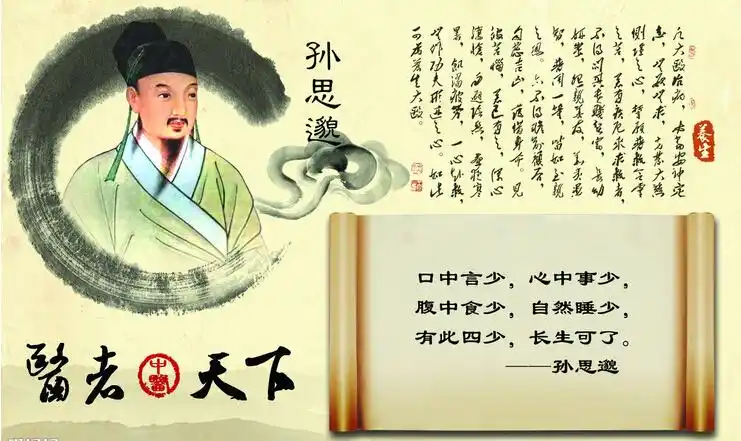 孙思邈
凡大医治病，必当安神定
志，无欲无求，先发大慈
恻隐之心，誓愿普救含灵
之苦，若有疾厄来求救者，
不得问其贵贱贫富，长幼
妍蚩，怨亲善友，华夷愚
智，普同一等，皆如至亲
之想。亦不得瞻前顾后，
自虑吉凶，护惜身命。见
彼苦恼，若己有之，深心
凄怆，勿避险巇，昼夜寒
暑，饥渴疲劳，一心赴救，
无作功夫形迹之心。如此
可为苍生大医。
养生
口中言少，心中事少，
腹中食少，自然睡少，
有此四少，长生可了。
——孙思邈
醫者中醫天下